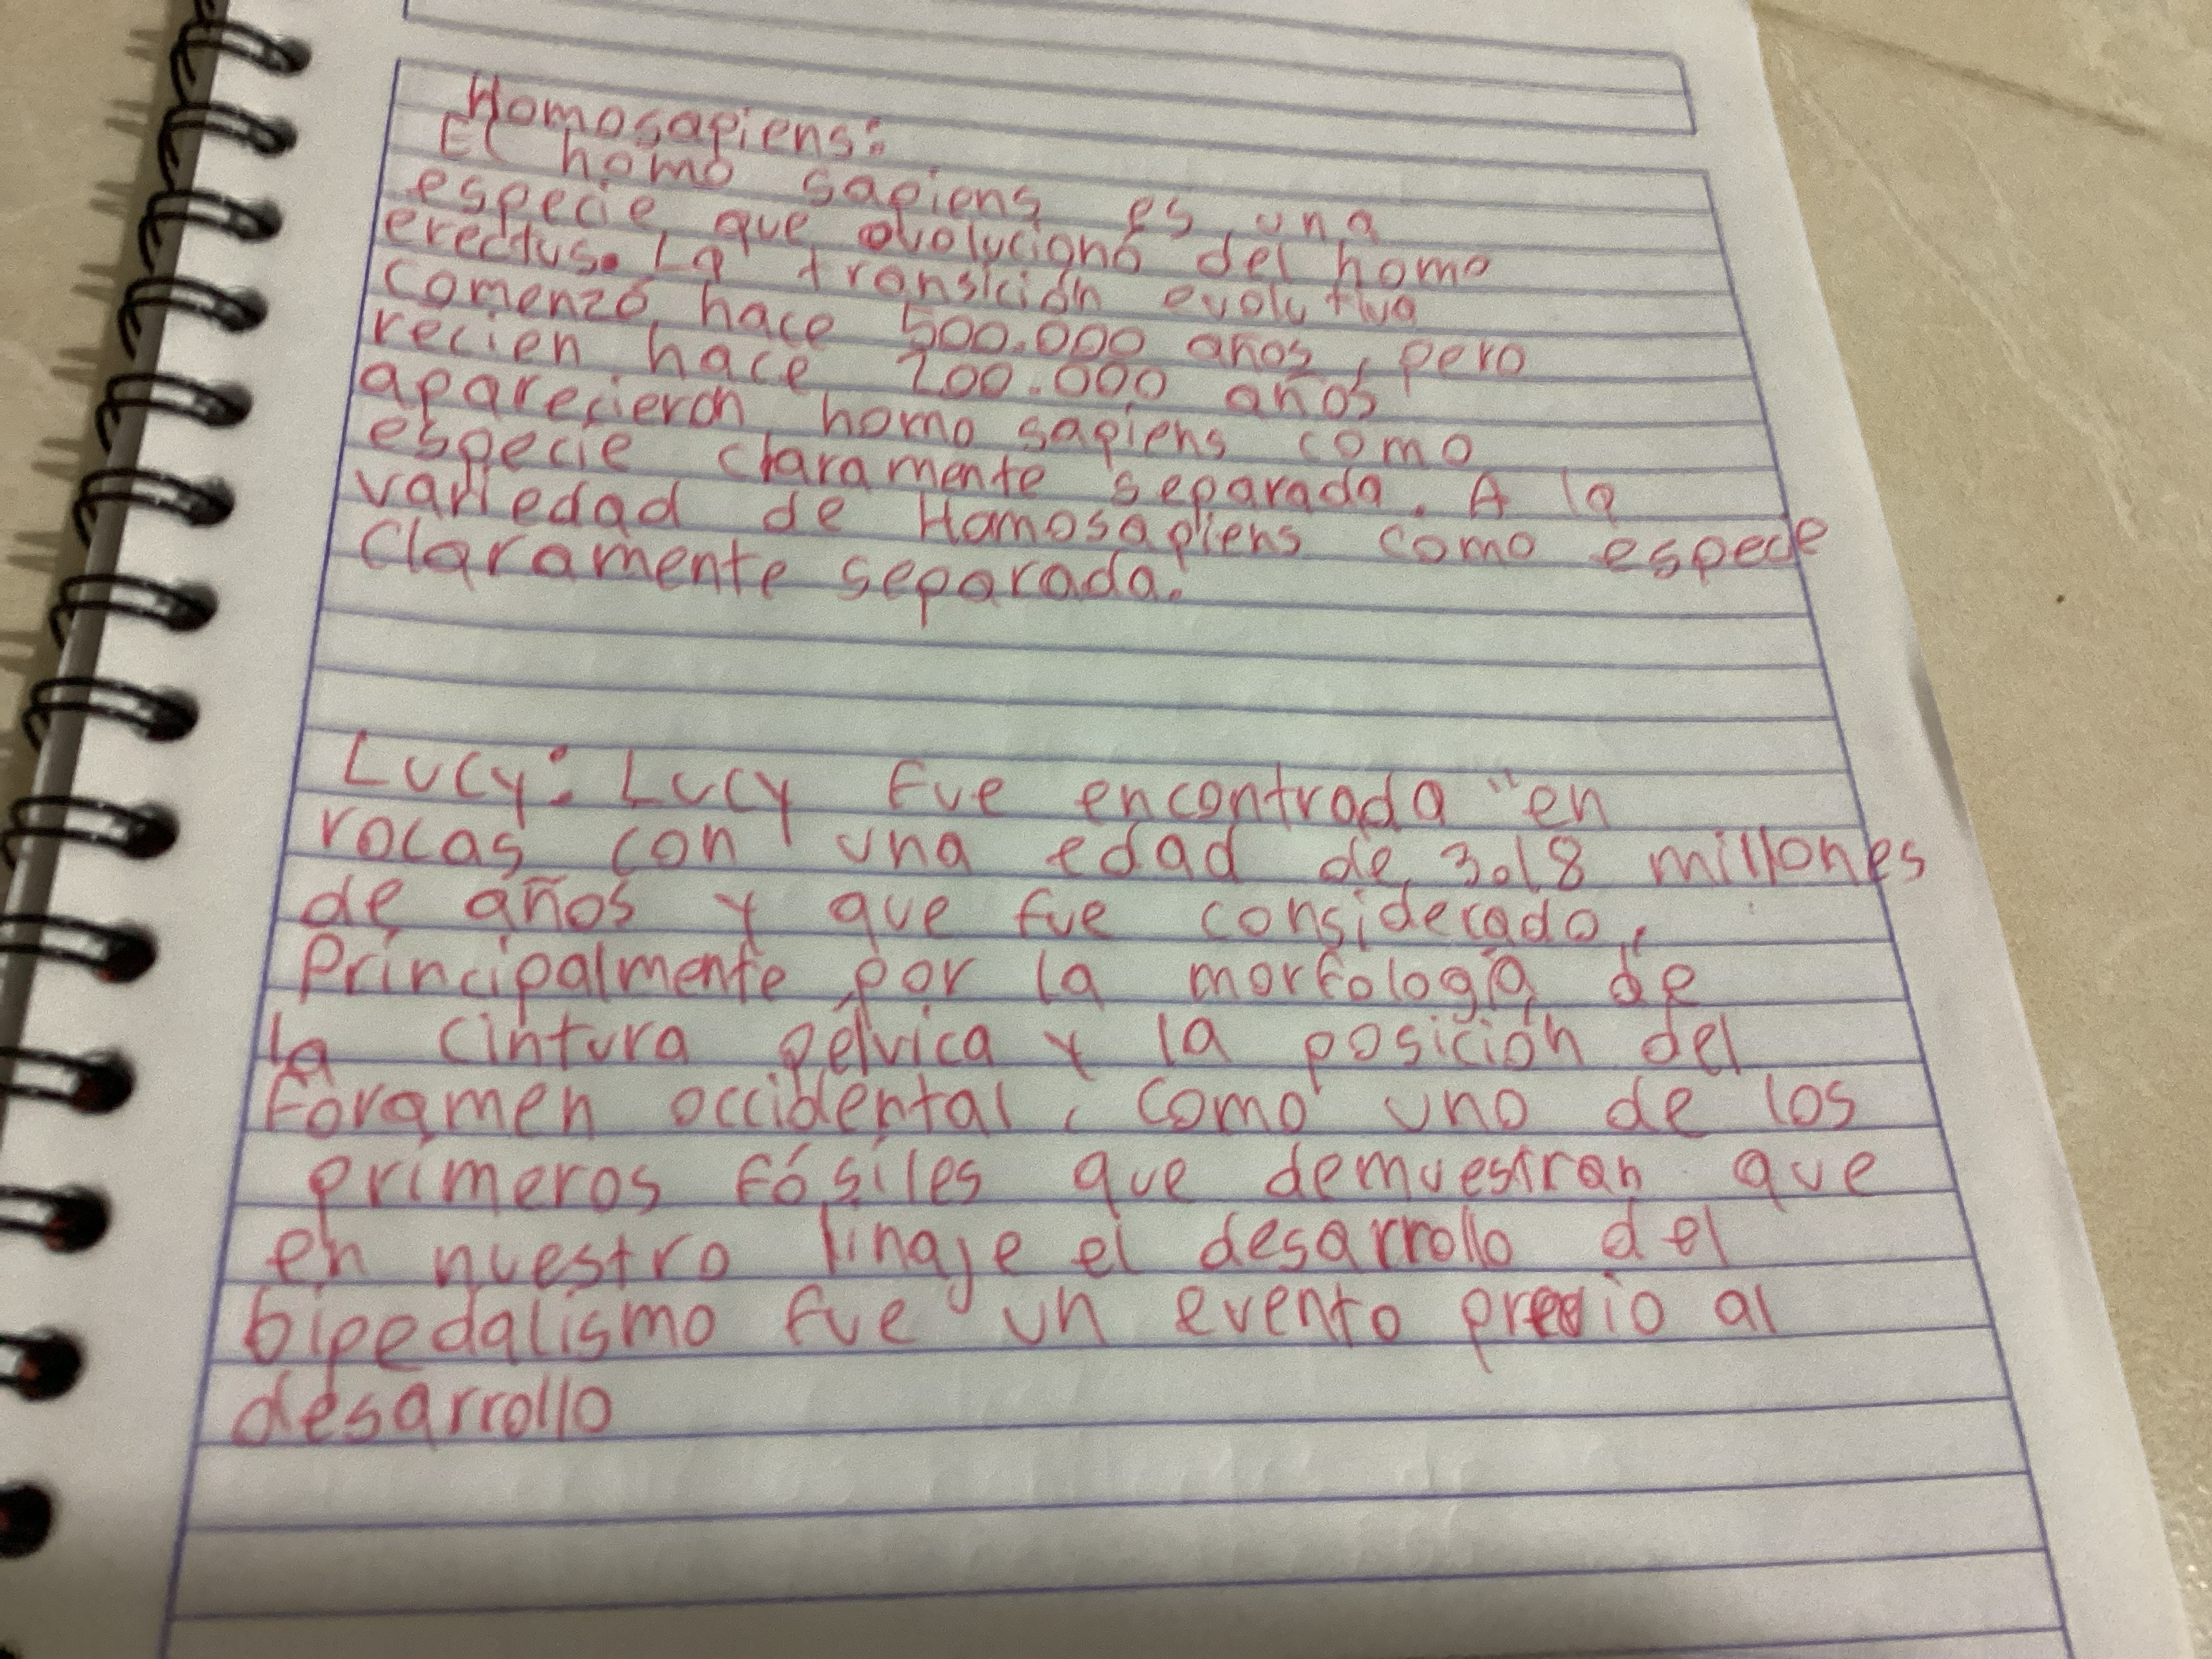 Homosapiens:
El homo sapiens es una
especie que evolucionó del homo
erectus. La transición evolutiva
comenzó hace 500.000 años, pero
recien hace 200.000 años
aparecieron homo sapiens como
especie claramente separada. A la
variedad de Homosapiens como espece
Claramente separada.
Lucy: Lucy fue encontrada "en
rocas con una edad de 3.18 millones
de años y que fue considerado,
Principalmente por la morfología de
la cintura pélvica y la posición del
Foramen occidental, como uno de los
primeros fósiles que demuestran que
en nuestro linaje el desarrollo del
bipedalismo fue un evento previo al
desarrollo